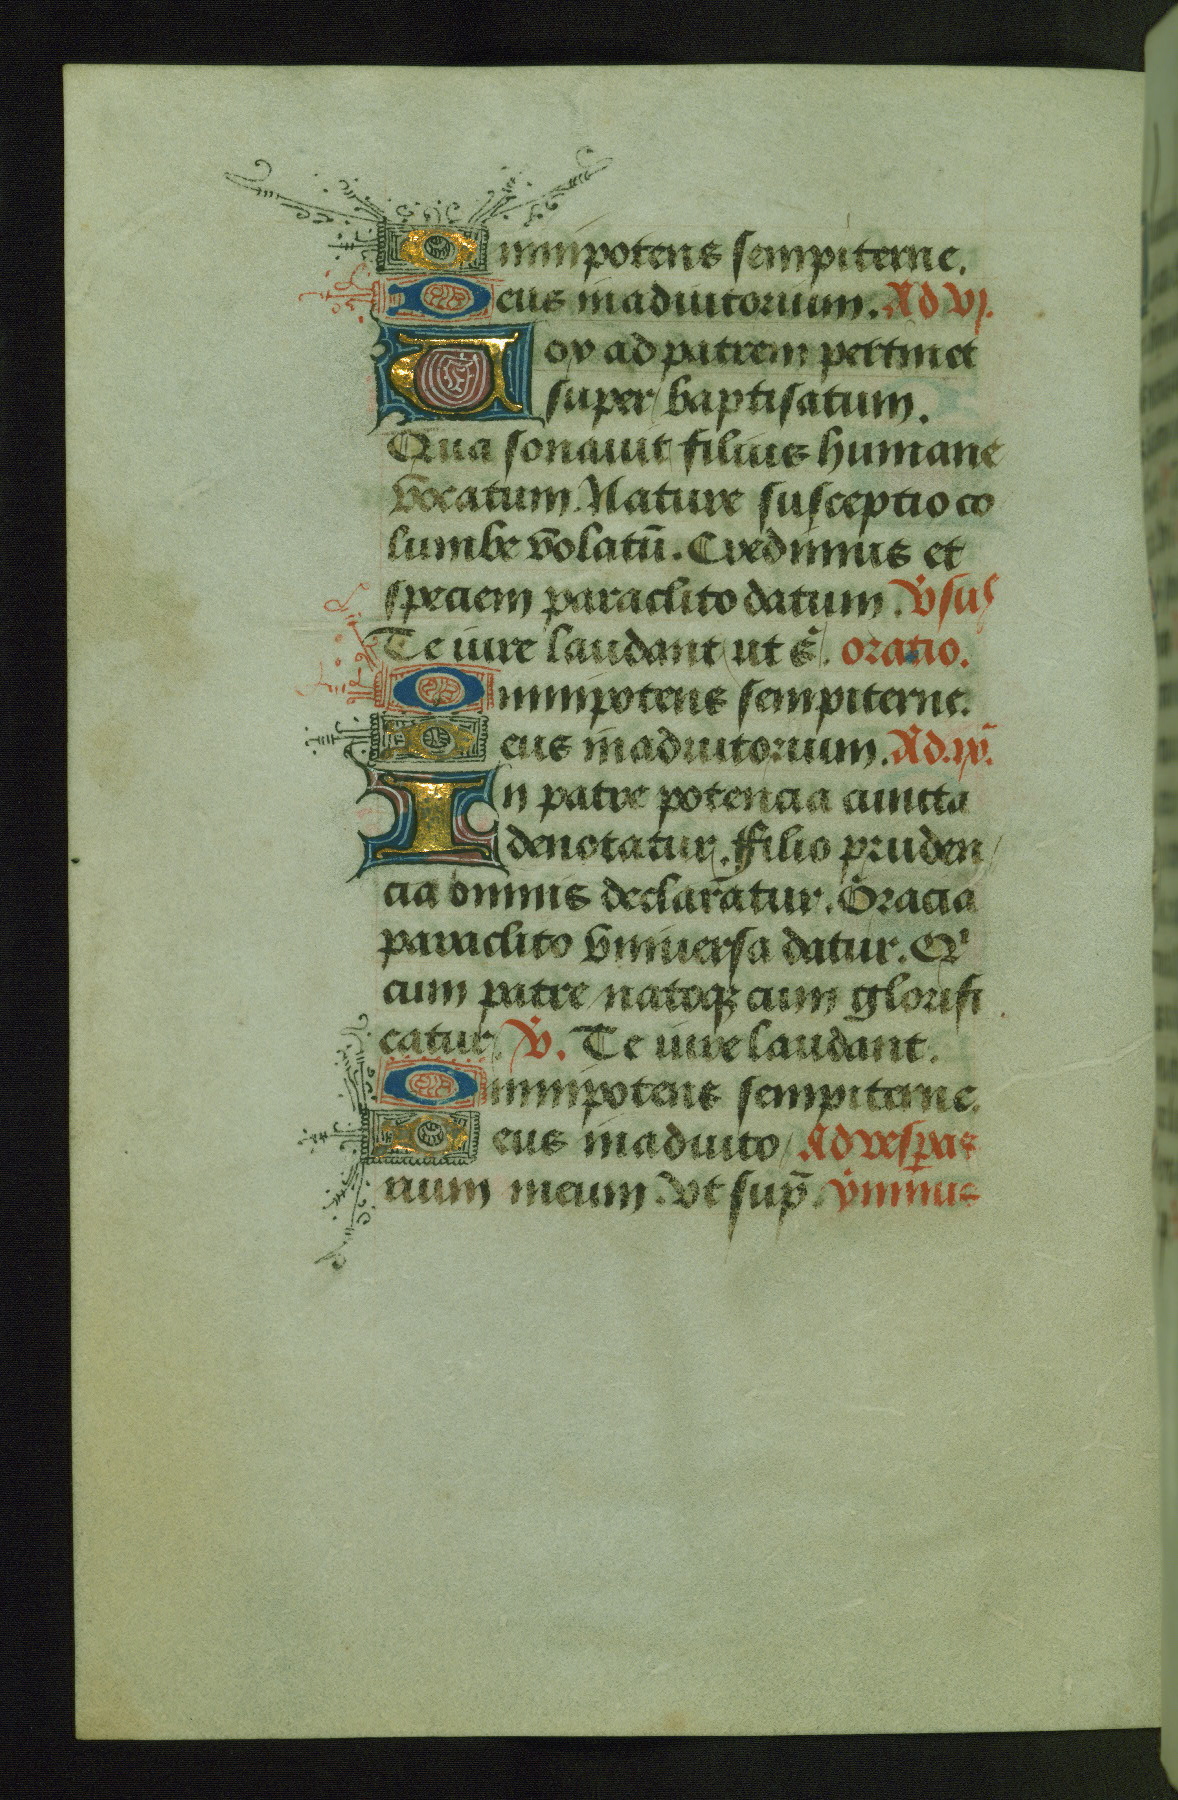 Omnipotens sempiterne.
Deus in adiutorium. Ad vj.
Vox ad patrem pertinet
super baptisatum.
Qua sonauit filius humane
vocatum. Nature susceptio co
lumbe volatū. Credimus et
speciem paraclito datum. v̄sus
Te iure laudant ut s̄. oratio.
Omnipotens sempiterne.
Deus in adiutorium. Ad. ix.
In patre potencia cuncta
denotatur. Filio pruden
cia omnis declaratur. Gracia
paraclito vniuersa datur. Q
cum patre natoqz cum glorifi
catur. v̄. Te iure laudant.
Omnipotens sempiterne.
Deus in adiuto Ad vesperas
rium meum. vt sup̄. ymnus